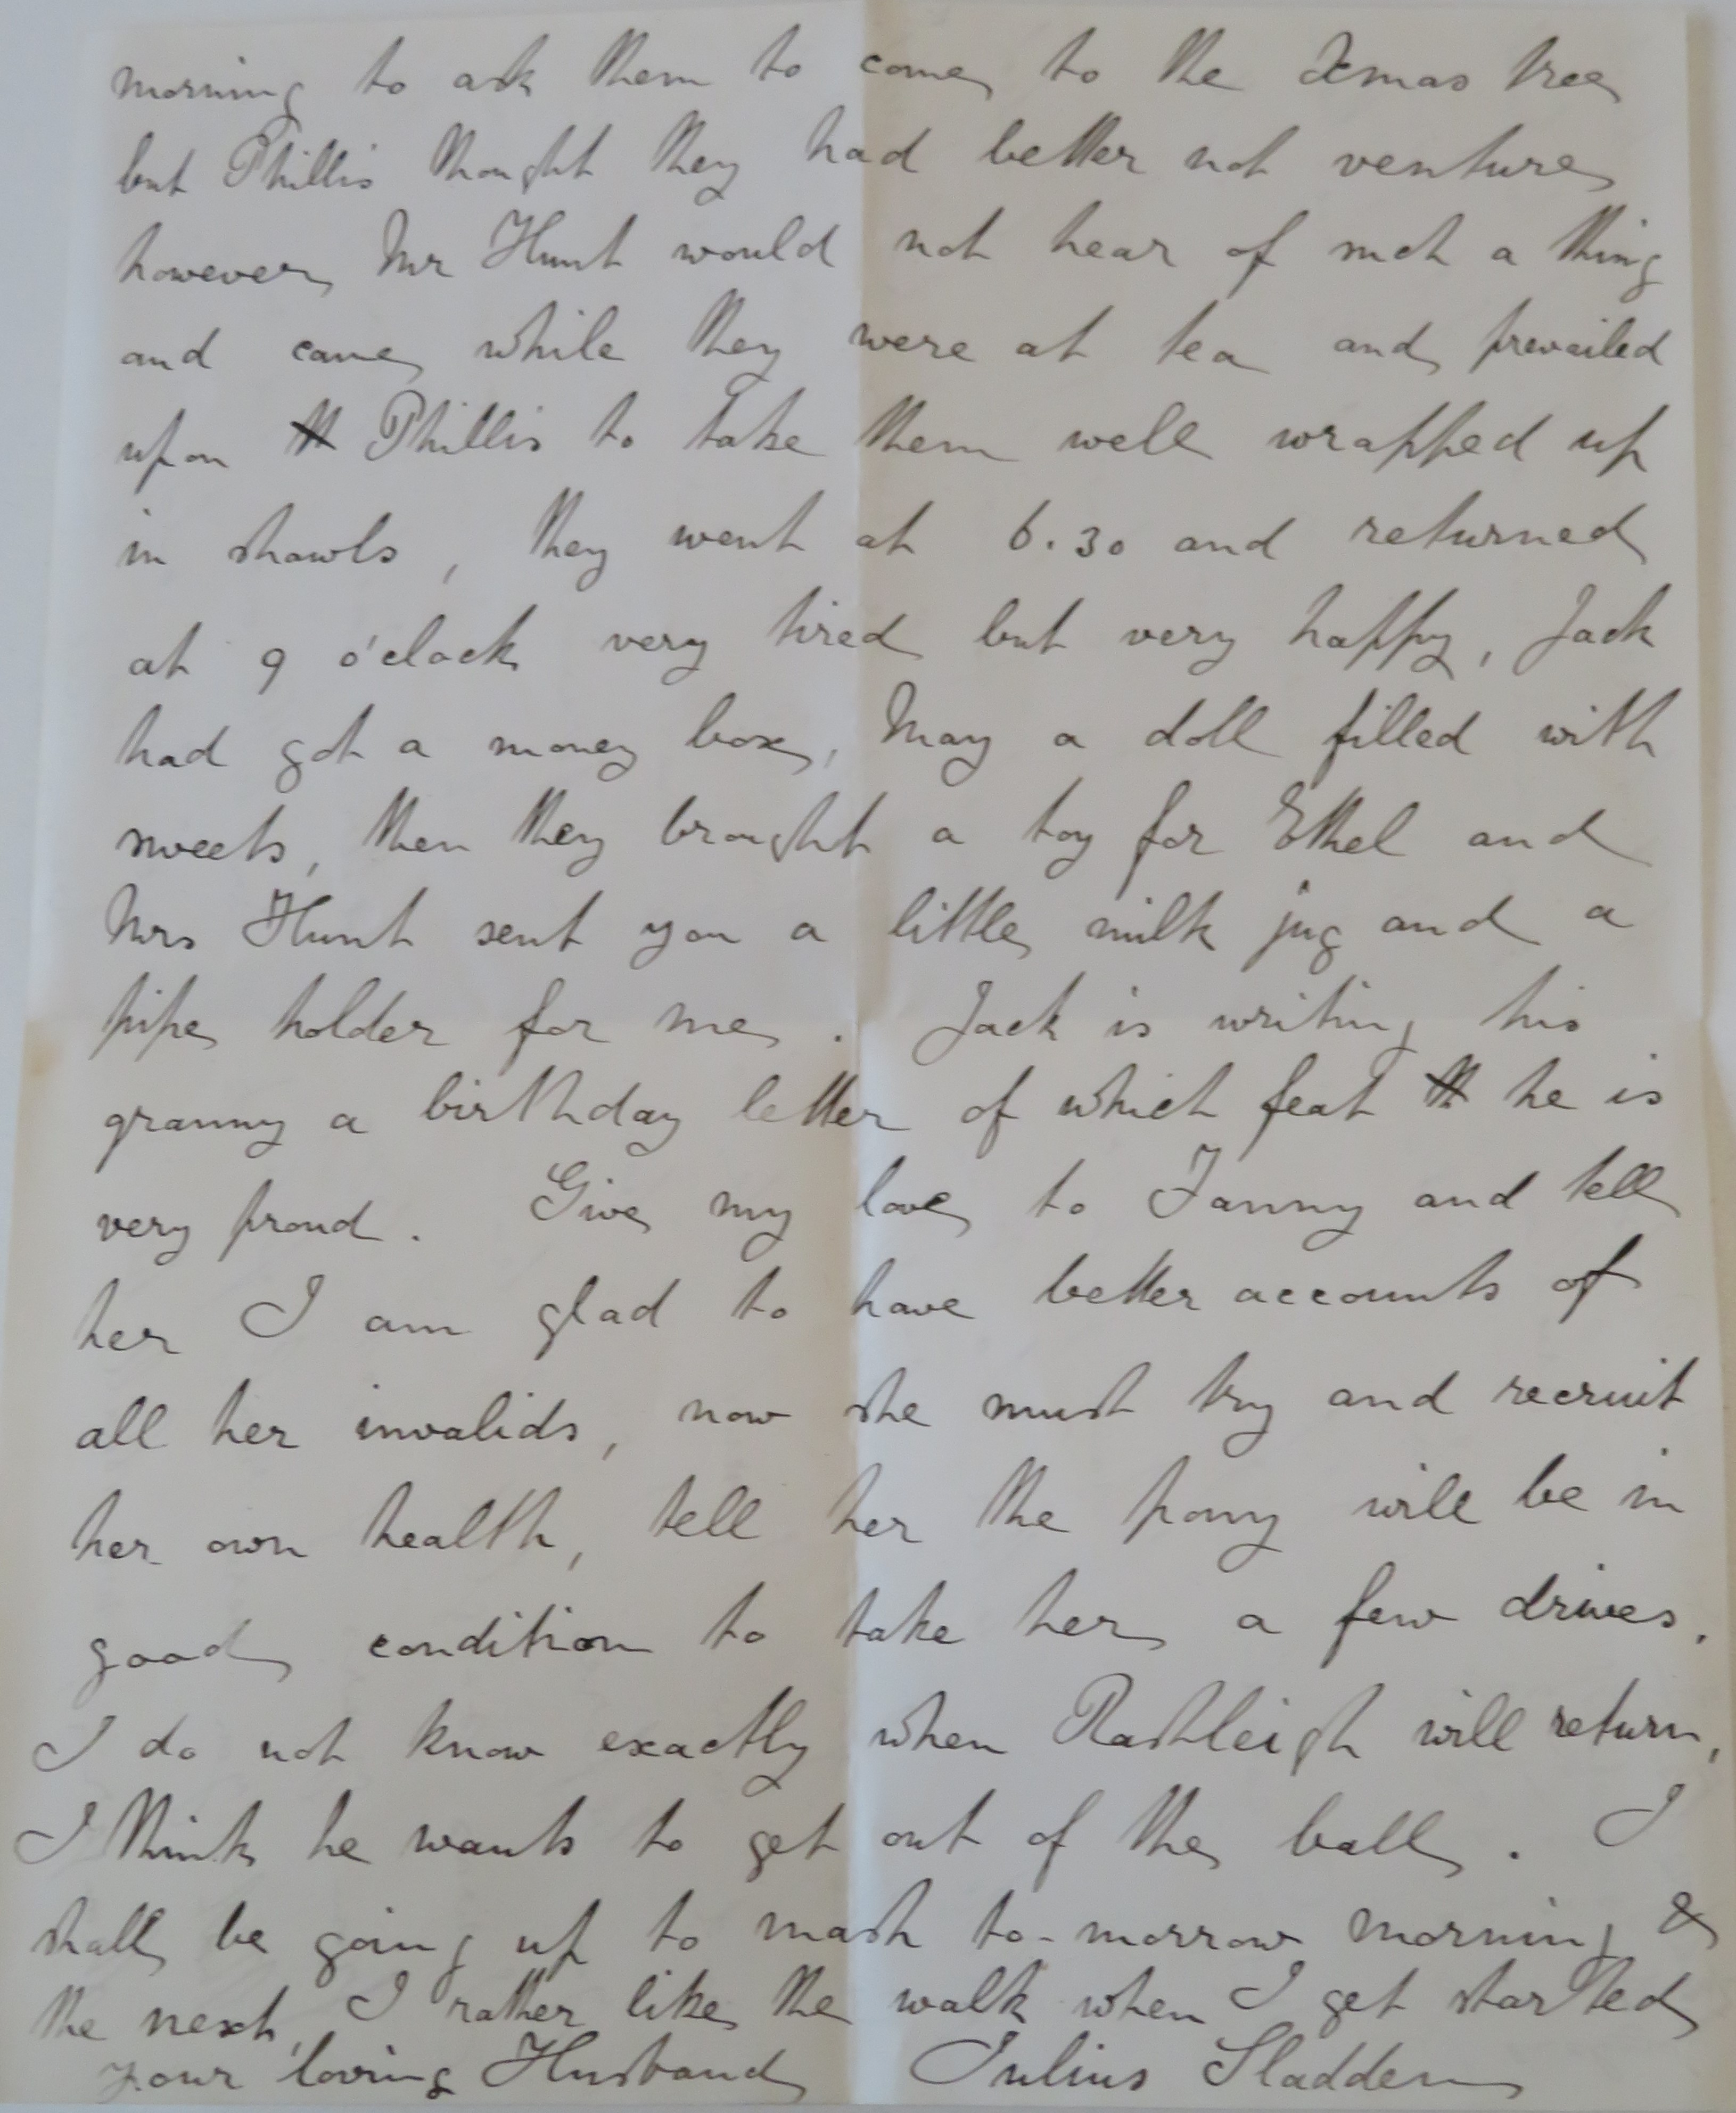 morning to ask them to come to the Xmas tree
but Phillis thought they had better not venture
however Mr Hunt would not hear of such a thing
and came while they were at tea and prevailed
upon th Phillis to take them well wrapped up
in shawls, they went at 6.30 and returned
at 9 o'clock very tired but very happy, Jack
had got a money box, May a doll filled with
sweets, then they brought a toy for Ethel and
Mrs Hunt sent you a little milk jug and a
pipe holder for me. Jack is writing his
granny a birthday letter of which feat th he is
very proud. Give my love to Fanny and tell
her I am glad to have better accounts of
all her invalids, now she must try and recruit
her own health, tell her the pony will be in
good condition to take her a few drives.
I do not know exactly when Rashleigh will return,
I think he wants to get out of the ball. I
shall be going up to mash to-morrow morning &
the next, I rather like the walk when I get started
your loving Husband Julius Sladden